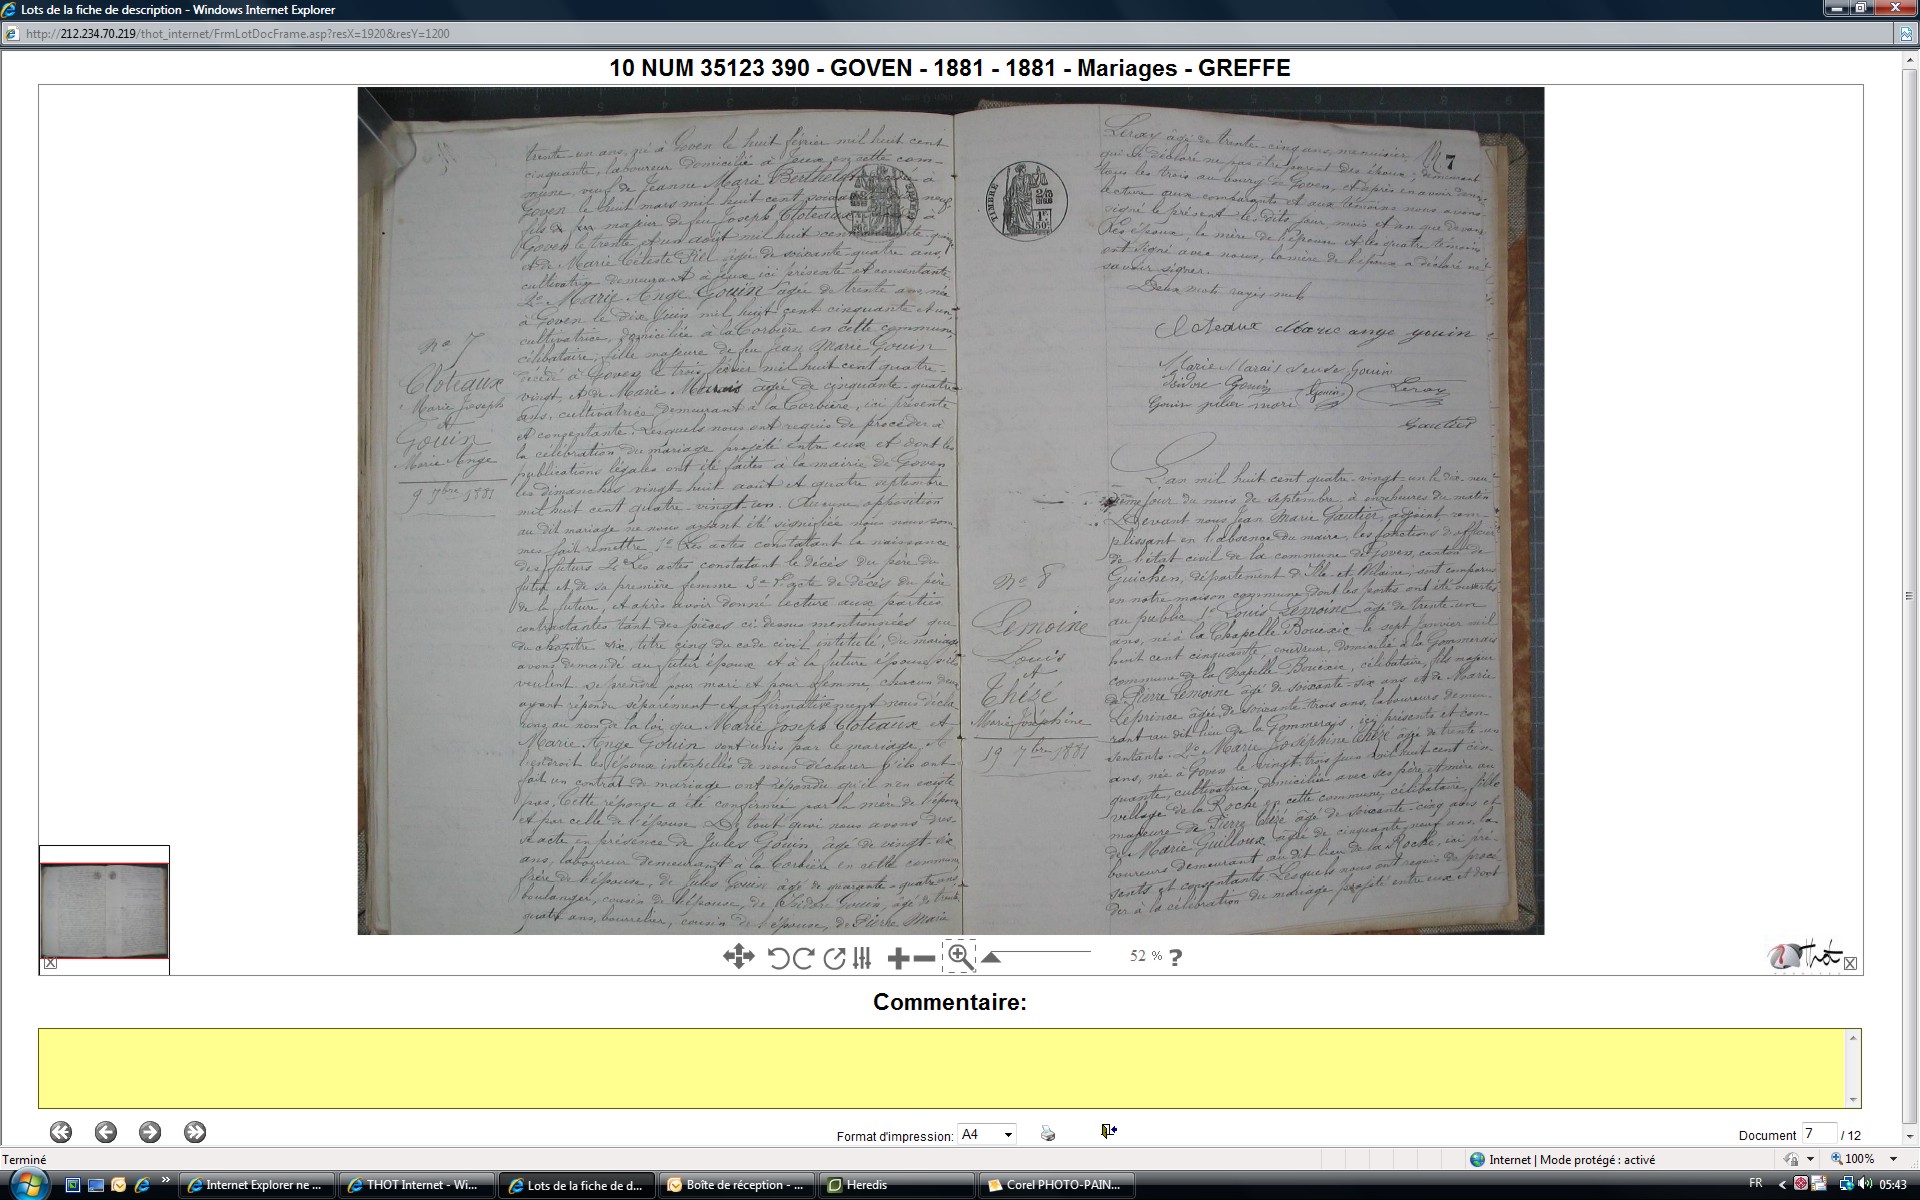 Lots de la fiche de description - Windows Internet Explorer
http://212.234.70.219/thot_internet/FrmLotDocFrame.asp?resX=1920&resY=1200
10 NUM 35123 390 - GOVEN - 1881 - 1881 - Mariages - GREFFE
trente-un ans, né à Goven le huit février mil huit cent
cinquante, laboureur domicilié à en cette com-
mune, veuf de Jeanne Marie Berthelot à
Goven le huit mars mil huit cent
fils majeur de feu Joseph Cloteaux à
Goven le trente et un août mil huit cent
et de Marie Céleste Piel âgée de soixante-quatre ans,
cultivatrice demeurant à ici présente et consentante
2º Marie Ange Gouin âgée de trente ans, née
à Goven le dix juin mil huit cent cinquante et un,
cultivatrice, domiciliée à la Corbière en cette commune,
célibataire, fille majeure de feu Jean Marie Gouin
décédé à Goven le trois février mil huit cent quatre-
vingt, et de Marie Marais âgée de cinquante-quatre
ans, cultivatrice demeurant à la Corbière, ici présente
et consentante. Lesquels nous ont requis de procéder à
la célébration du mariage projeté entre eux et dont les
publications légales ont été faites à la mairie de Goven
les dimanches vingt-huit août et quatre septembre
mil huit cent quatre-vingt-un. Aucune opposition
au dit mariage ne nous ayant été signifiée nous nous som-
mes fait remettre 1º Les actes constatant la naissance
des futurs 2º Les actes constatant le décès du père du
futur et de sa première femme 3º l'acte de décès du père
de la future, et après avoir donné lecture aux parties
contractantes tant des pièces ci-dessus mentionnées que
du chapitre six, titre cinq du code civil intitulé, du mariage
avons demandé au futur époux et à la future épouse s'ils
veulent se prendre pour mari et pour femme, chacun d'eux
ayant répondu séparément et affirmativement nous décla-
rons au nom de la loi que Marie Joseph Cloteaux et
Marie Ange Gouin sont unis par le mariage. A
l'endroit les époux interpellés de nous déclarer s'ils ont
fait un contrat de mariage ont répondu qu'il n'en existe
pas. Cette réponse a été confirmée par la mère de l'époux
et par celle de l'épouse. De tout quoi nous avons dres-
sé acte en présence de Jules Gouin, âgé de vingt-six
ans, laboureur demeurant à la Corbière en cette commune
frère de l'épouse, de Jules Gouin âgé de quarante-quatre ans
boulanger, cousin de l'épouse, de Isidore Gouin, âgé de trente
quatre ans, bourrelier, cousin de l'épouse, de Pierre Marie
nº 7
Cloteaux
Marie Joseph
et
Gouin
Marie Ange
9 7bre 1881
TIMBRE
7
Leray âgé de trente-cinq ans, menuisier
qui a déclaré ne pas être parent des époux, demeurant
tous les trois au bourg de Goven, et après en avoir donné
lecture aux comparants et aux témoins nous avons
signé le présent les dits jour, mois et an que devant
Les époux, la mère de l'épouse et les quatre témoins
ont signé avec nous, la mère de l'époux a déclaré ne
savoir signer.
Deux mots rayés nuls
Cloteaux Marie ange gouin
Marie Marais veuve Gouin
Isidore Gouin Gouin Leray
Gouin
Gautier
L'an mil huit cent quatre-vingt-un le dix-neu-
vième jour du mois de septembre à onze heures du matin
Devant nous Jean Marie Gautier, adjoint, rem-
plissant en l'absence du maire, les fonctions d'officier
de l'état civil de la commune de Goven, canton de
Guichen, département d'Ille-et-Vilaine, sont comparus
en notre maison commune dont les portes ont été ouvertes
au public 1º Louis Lemoine âgé de trente-un
ans, né à la Chapelle Bouexic le sept janvier mil
huit cent cinquante, couvreur, domicilié à la Gommerais
commune de la Chapelle Bouëxic, célibataire, fils majeur
de Pierre Lemoine âgé de soixante-six ans et de Marie
Leprince âgée de soixante trois ans, laboureurs demeu-
rant au dit lieu de la Gommerais, ici présents et con-
sentants. 2º Marie Joséphine Thézé âgée de trente-un
ans, née à Goven le vingt-trois juin mil huit cent cin-
quante, cultivatrice, domiciliée avec ses père et mère au
village de la Roche en cette commune, célibataire, fille
majeure de Pierre Thézé âgé de soixante-cinq ans et
de Marie Guilloux âgée de cinquante-neuf ans, la-
boureurs demeurant au dit lieu de la Roche, ici pré-
sents et consentants. Lesquels nous ont requis de procé-
der à la célébration du mariage projeté entre eux et dont
nº 8
Lemoine
Louis
et
Thézé
Marie Joséphine
19 7bre 1881
52 %
Thot
Commentaire:
Format d'impression: A4
Document 7 / 12
Terminé
Internet | Mode protégé : activé
100%
Internet Explorer ne ...
THOT Internet - Wi...
Lots de la fiche de d...
Boîte de réception - ...
Heredis
Corel PHOTO-PAIN...
FR
05:43